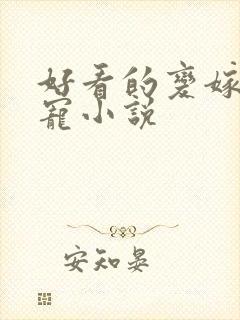 好看的变嫁
宠小說
安知晏